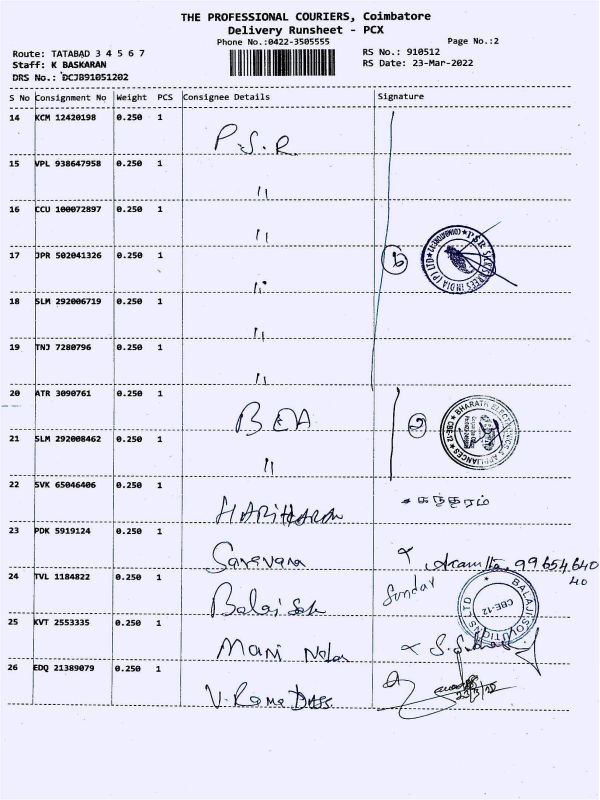 THE PROFESSIONAL COURIERS, Coimbatore
Delivery Runsheet - PCX
Phone No.:0422-3505555
Page No.:2
Route: TATABAD 3 4 5 6 7
RS No.: 910512
Staff: K BASKARAN
RS Date: 23-Mar-2022
DRS No.: DCJB91051202
S No Consignment No Weight PCS Consignee Details Signature
14 KCM 12420198 0.250 1 P.S.R.
15 VPL 938647958 0.250 1 "
16 CCU 100072897 0.250 1 "
17 JPR 502041326 0.250 1 "
6
18 SLM 292006719 0.250 1 "
19 TNJ 7280796 0.250 1 "
20 ATR 3090761 0.250 1 BEA
2
BHARATH ELECTRONICS & APPLIANCES CBE-12
21 SLM 292008462 0.250 1 "
22 SVK 65046406 0.250 1 HARIHARAN
23 PDK 5919124 0.250 1 Saravana
24 TVL 1184822 0.250 1 Balaji
BALAJI SOLUTIONS LTD CBE-12
25 KVT 2553335 0.250 1 Mani
26 EDQ 21389079 0.250 1 V. Rama Dass.